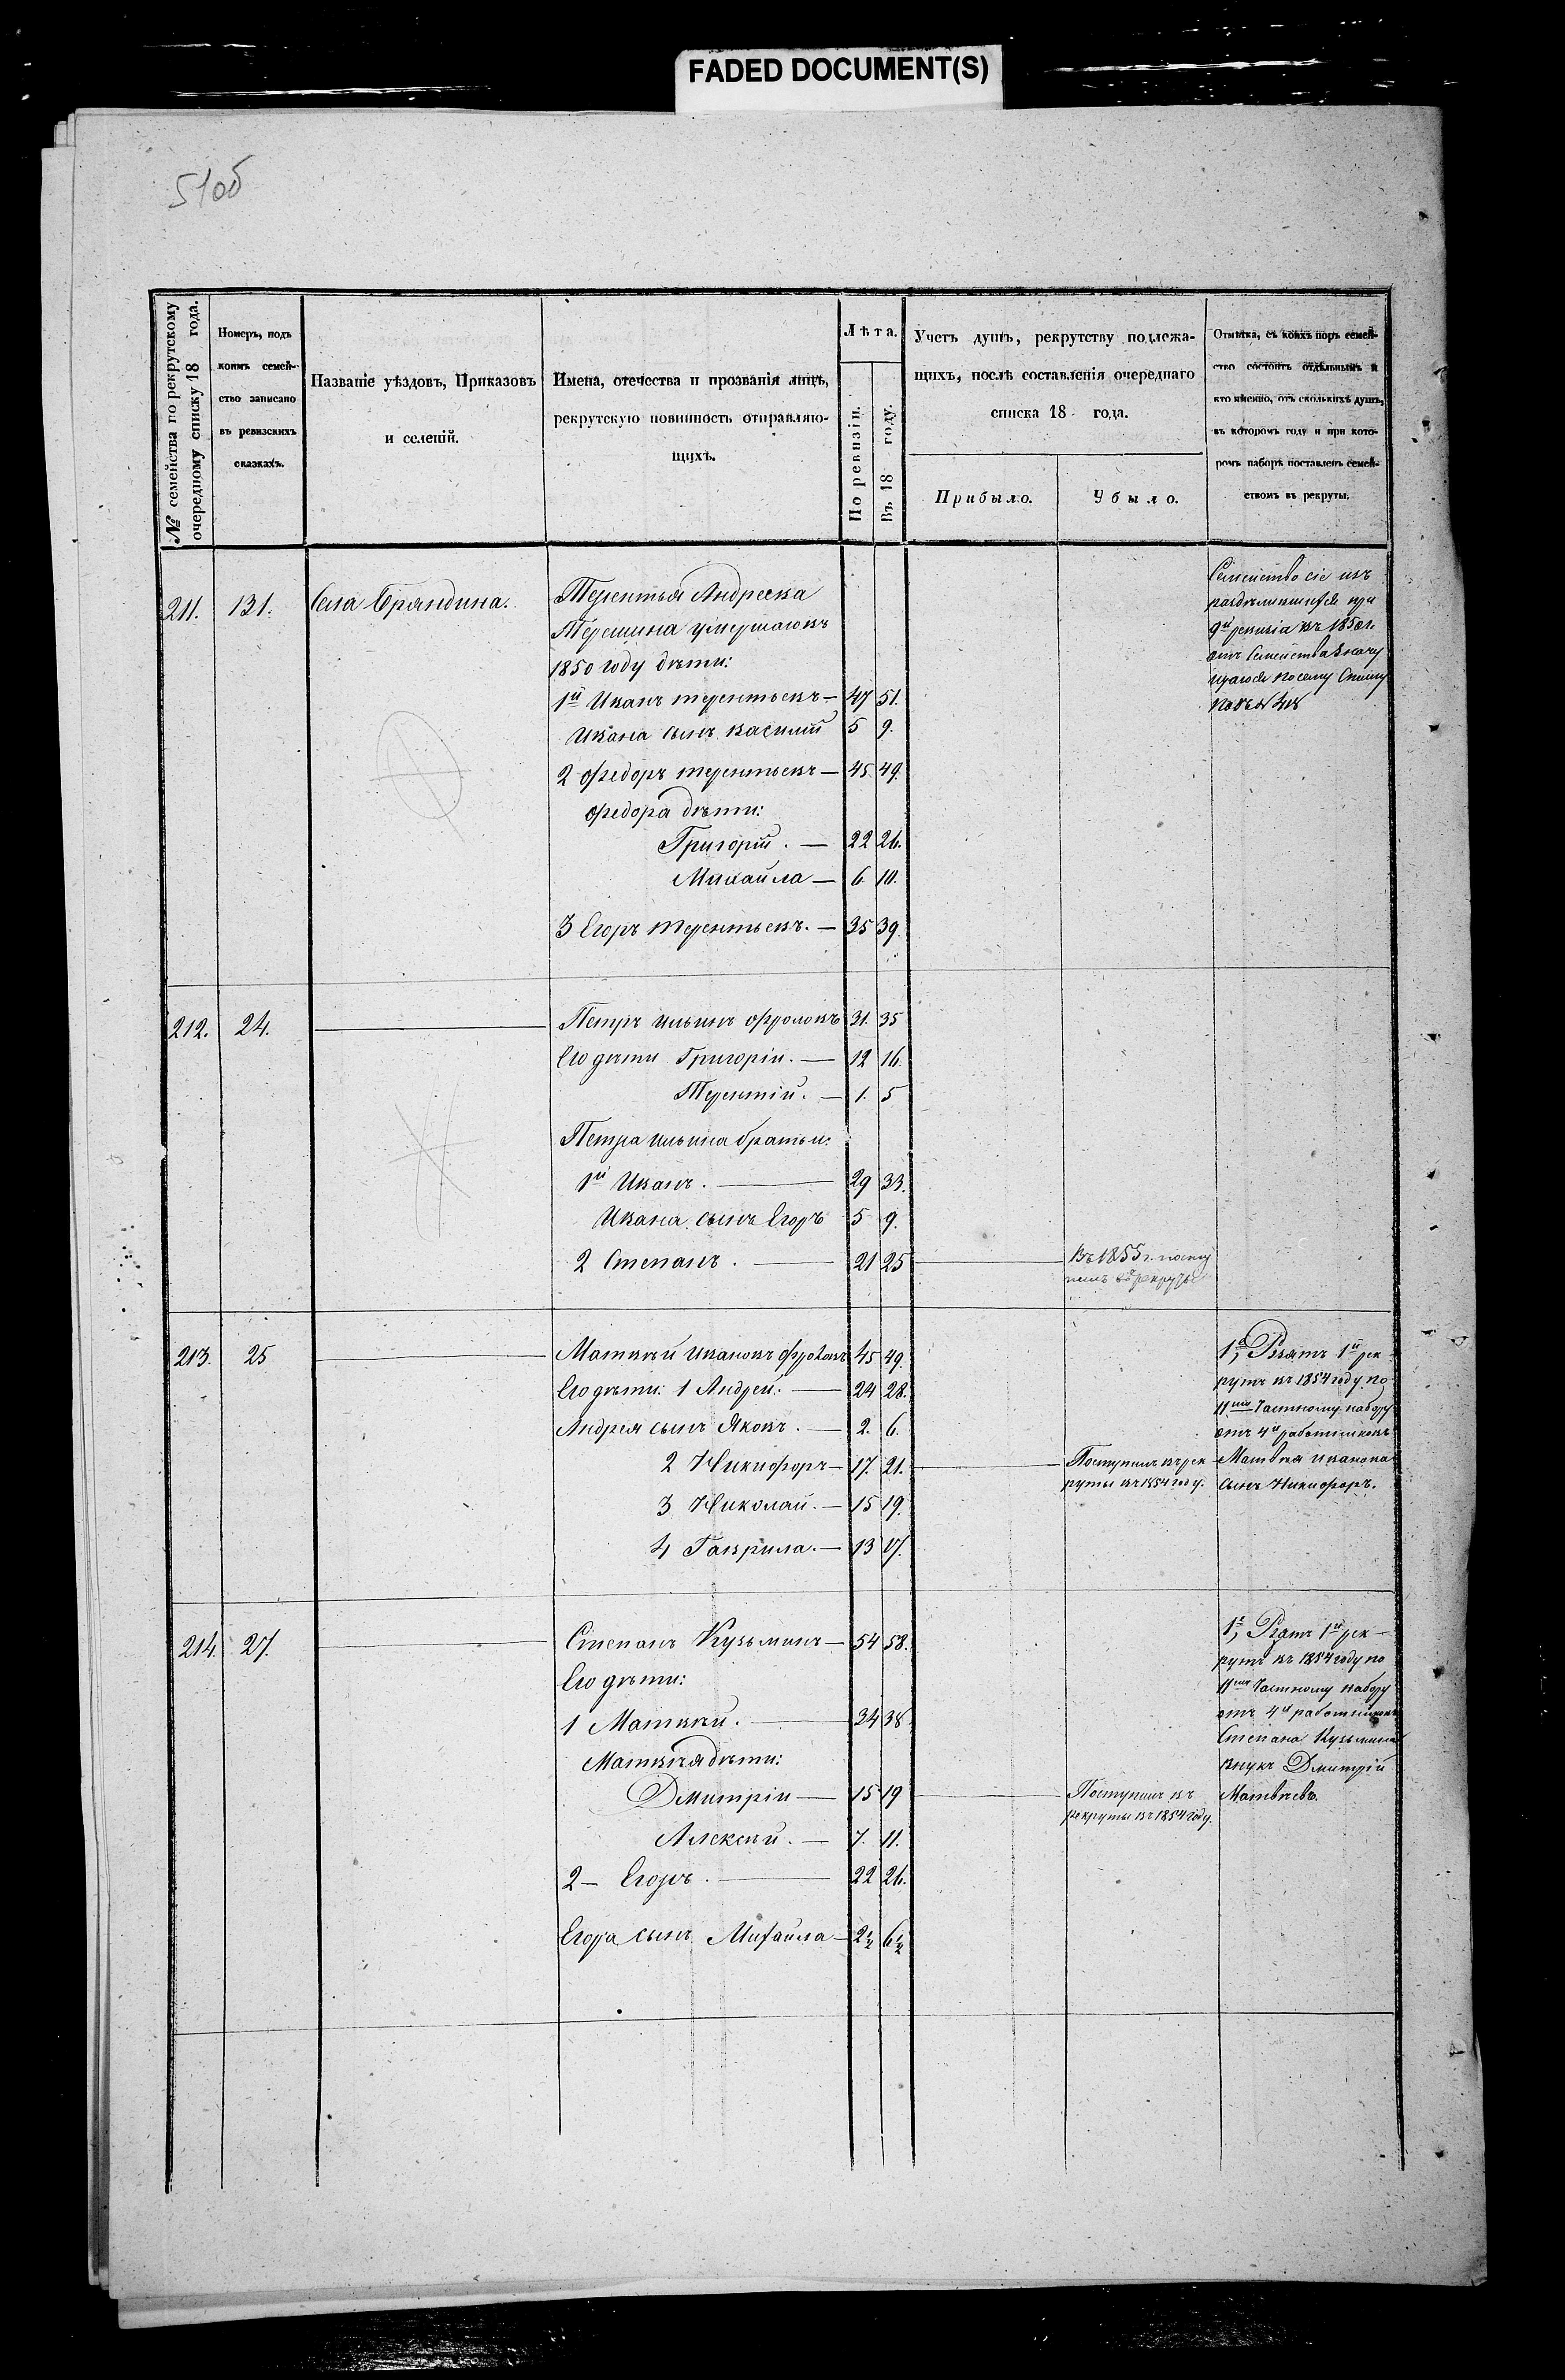 FADED DOCUMENT(S)
510б
№ семейства по рекрутскому
очередному списку 18 года.
Номеръ, подъ
коимъ семей-
ство записано
въ ревизскихъ
сказкахъ.
Названіе уѣздовъ, Приказовъ
и селеній.
Имена, отечества и прозванія лицъ,
рекрутскую повинность отправляю-
щихъ.
Лѣта.
По ревизіи.
Въ 18 году.
Учетъ душъ, рекрутству подлежа-
щихъ, послѣ составленія очереднаго
списка 18 года.
Прибыло.
Убыло.
Отмѣтка, съ коихъ поръ семей-
ство состоитъ отдѣльнымъ и
кто именно, отъ сколькихъ душъ,
въ которомъ году и при кото-
ромъ наборѣ поставленъ семей-
ствомъ въ рекруты.
211. 131. Села Бряндина. Терентья Андреева
Терешина умершаго въ
1850 году дѣти:
1й Иванъ терентьевъ — 47 51.
Ивана сынъ Василій 5 9.
2 Федоръ терентьевъ — 45. 49.
Федора дѣти:
Григорій. — 22 26.
Михайла — 6. 10.
3 Егоръ терентьевъ. — 35 39.
Семейство сіе изъ
раздѣлившихся при
9й ревизіи въ 1850 г.
отъ Семейства значу
щагося по сему Списку
212. 24. Петръ ильинъ Фроловъ 31. 35
Его дѣти Григорій. — 12 16.
Терентій. — 1. 5
Петра ильина братьи:
1й Иванъ. — 29 33.
Ивана сынъ Егоръ 5 9.
2 Степанъ. — 21 25
Въ 1855 г. посту
пилъ въ рекруты
213. 25 Матвѣй ивановъ Фроловъ 45 49.
Его дѣти: 1 Андрей. — 24 28.
Андрея сынъ Яковъ. — 2. 6.
2 Никифоръ — 17. 21.
3 Николай. — 15 19.
4 Гаврила. — 13 17.
Поступилъ въ рек
руты въ 1854 году.
1е, Взятъ 1й рек
рутъ въ 1854 году по
11му Частному набору
отъ 4х работниковъ
Матвѣя иванова
сынъ Никифоръ.
214. 27. Степанъ Кузьминъ — 54 58.
Его дѣти:
1 Матвѣй. — 34 38
Матвѣя дѣти:
Дмитрій — 15 19
Алексѣй. — 7. 11.
2 — Егоръ. — 22 26.
Егора сынъ Михайла — 2½ 6½
Поступилъ въ
рекруты въ 1854 году.
1е, Взятъ 1й рек-
рутъ въ 1854 году по
11му Частному набору
отъ 4х работниковъ
Степана Кузьмина
внукъ Дмитрій
Матвѣевъ.